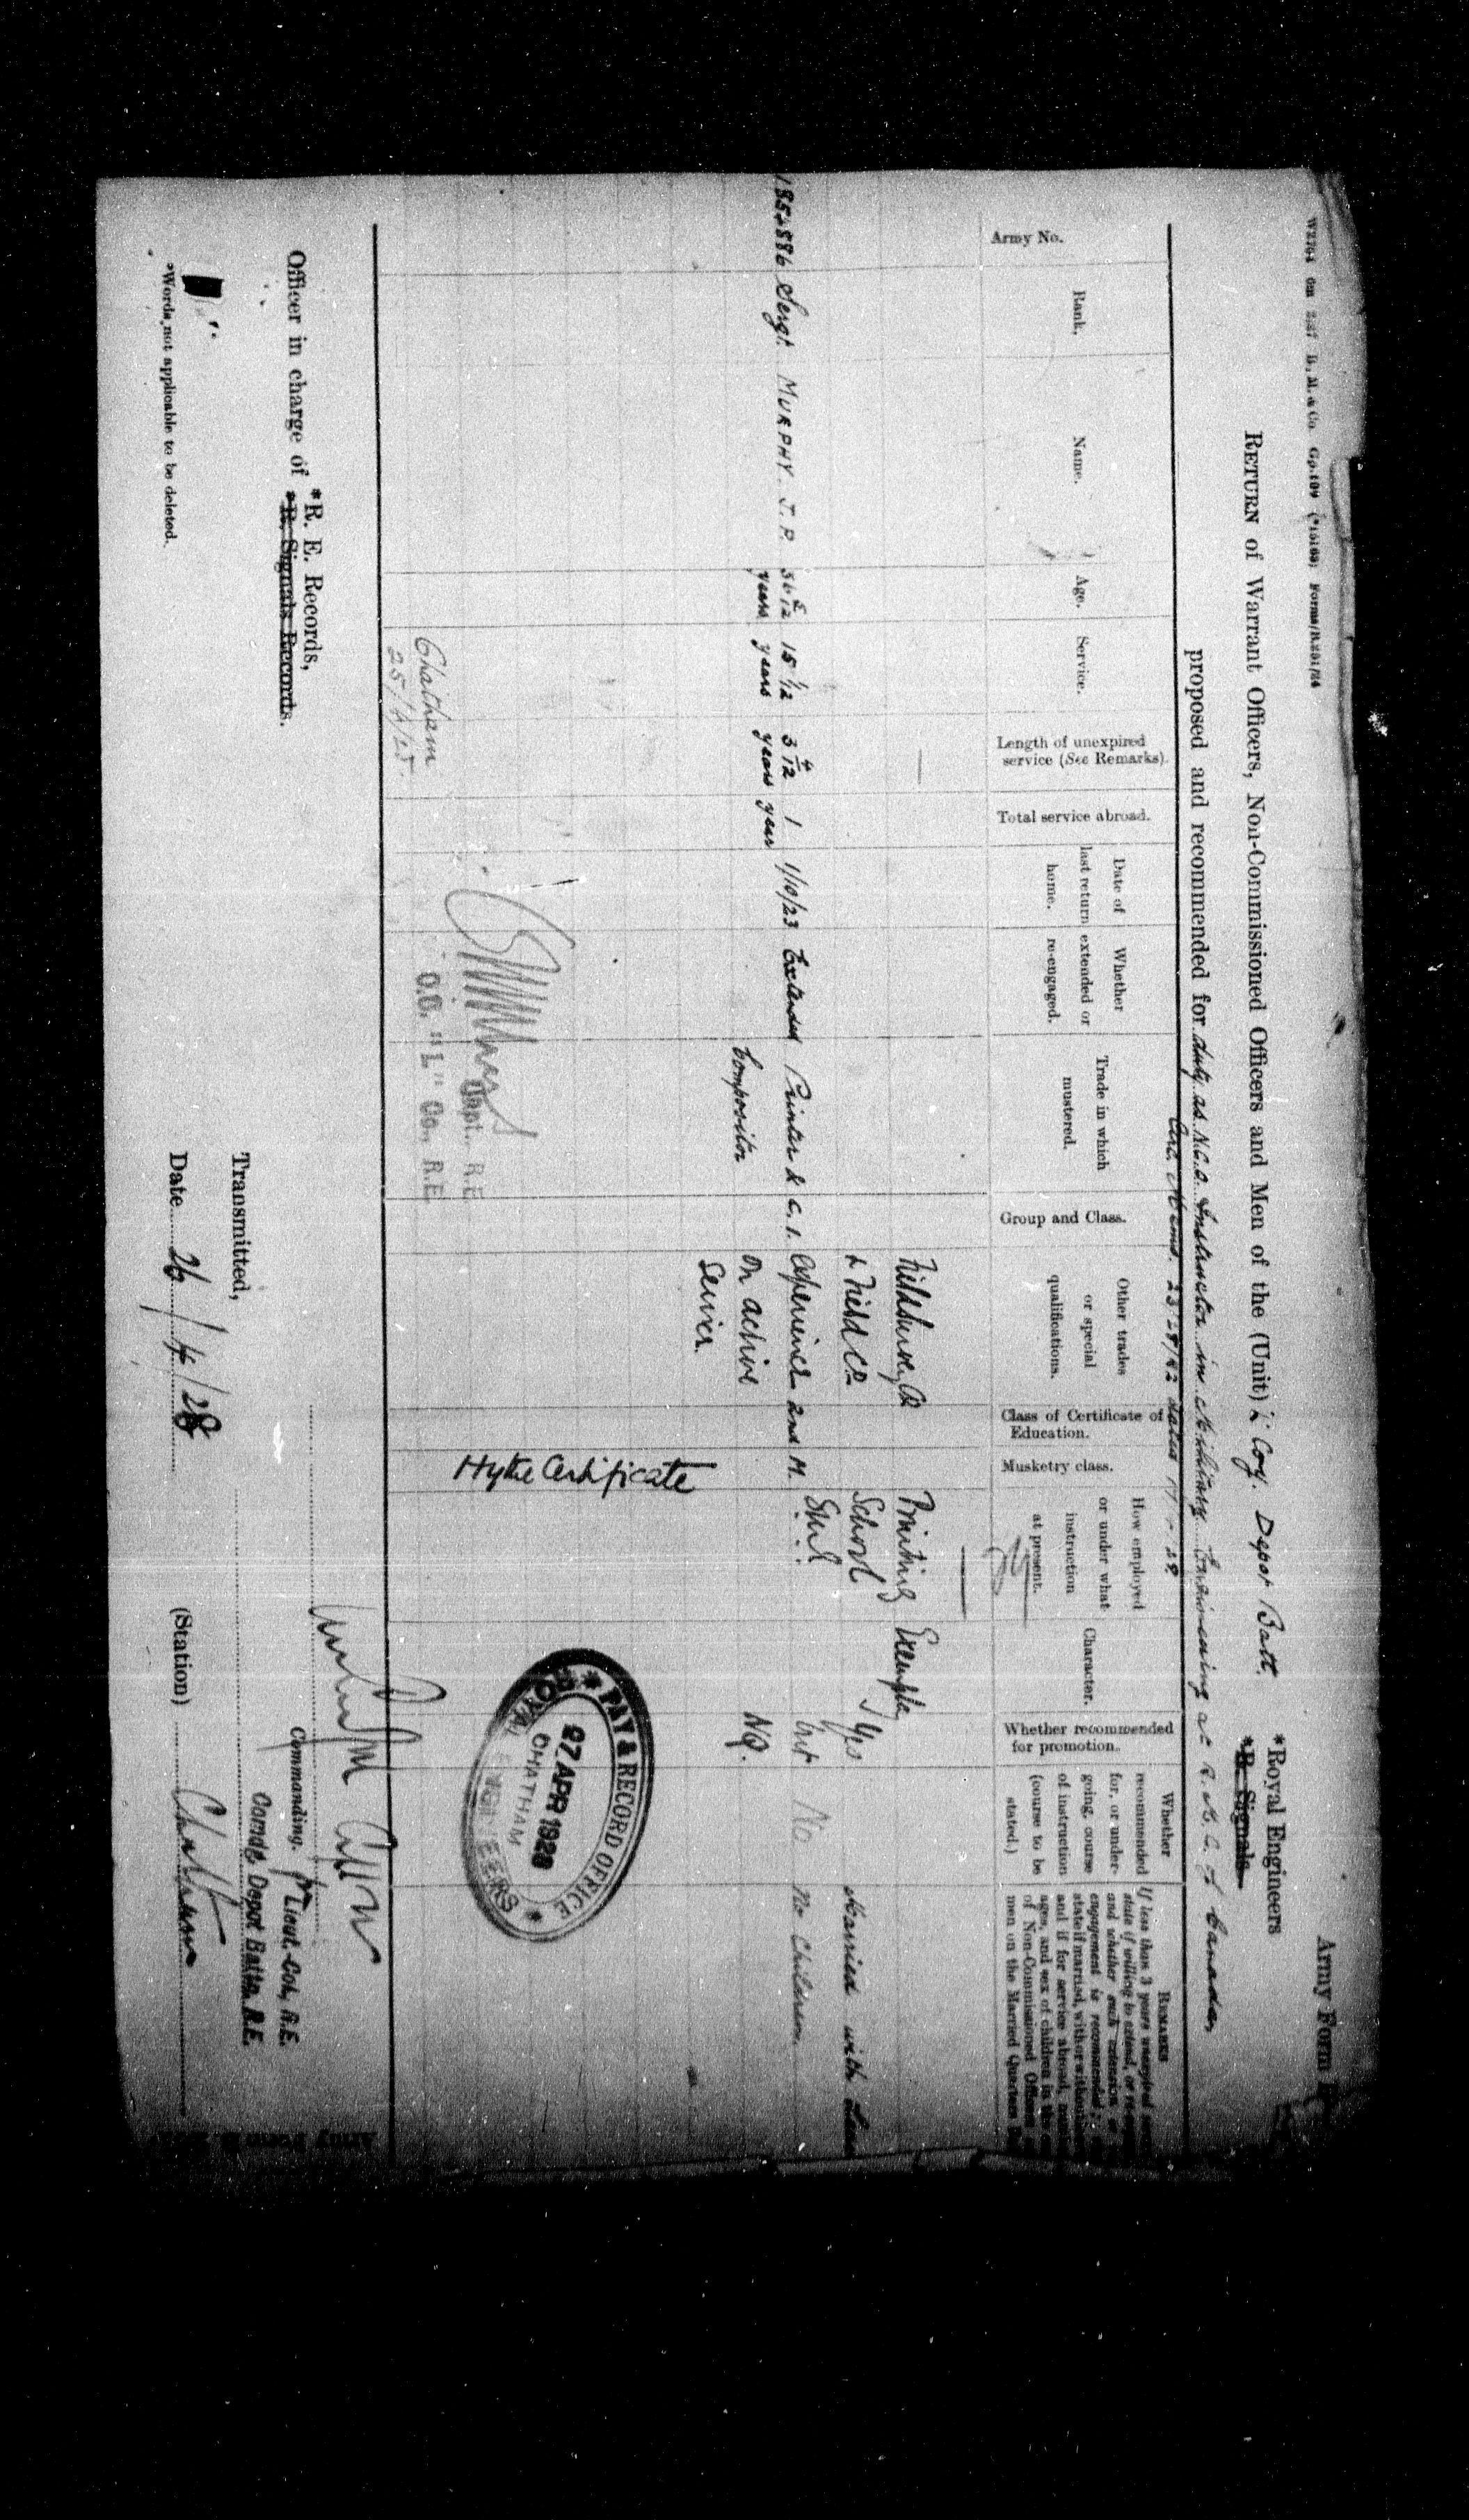 Army Form
W2764 6m 2/27 B., M. & Co. Gp.164 Forms/B.291/24
*Royal Engineers
*R. Signals
RETURN of Warrant Officers, Non-Commissioned Officers and Men of the (Unit) "L" Coy. Depot Batt.
proposed and recommended for duty as N.C.O. Instructor in Military Engineering at R.M.C. of Canada,
Army No.
Rank.
Name.
Age.
Service.
Length of unexpired
service (See Remarks).
Total service abroad.
Date of
last return
home.
Whether
extended or
re-engaged.
Trade in which
mustered.
Group and Class.
Other trades
or special
qualifications.
Class of Certificate of
Education.
Musketry class.
How employed
or under what
instruction
at present.
Character.
Whether recommended
for promotion.
Whether
recommended
for, or under-
going, course
of instruction
(course to be
stated.)
REMARKS
If less than 3 years unexpired
state if willing to extend, or
and whether such extension or
engagement is recommended;
state if married, with or without
and if for service abroad,
ages, and sex of children in the
of Non-Commissioned Officers
men on the Married Quarters
1854886 Sergt. MURPHY. J. P.
years
15 1/12
years
3 4/12
years
1
year
1/10/23
Extended
Printer &
Compositor
C. 1.
& Field Co
Experience
on active
service.
2nd
M.
Hythe Certificate
Printing
School
Yes
but
NQ.
No
Married with
No Children.
Chatham
Capt. R.E
O.C. "L" Co., R.E
PAY & RECORD OFFICE
27 APR 1928
CHATHAM
ROYAL ENGINEERS
Officer in charge of *R. E. Records,
*R. Signals Records.
Commanding.
Lieut.-Col., R.E.
Comdg Depot Battn. R.E.
Transmitted,
Date 26/4/28
(Station) Chatham
*Words not applicable to be deleted.